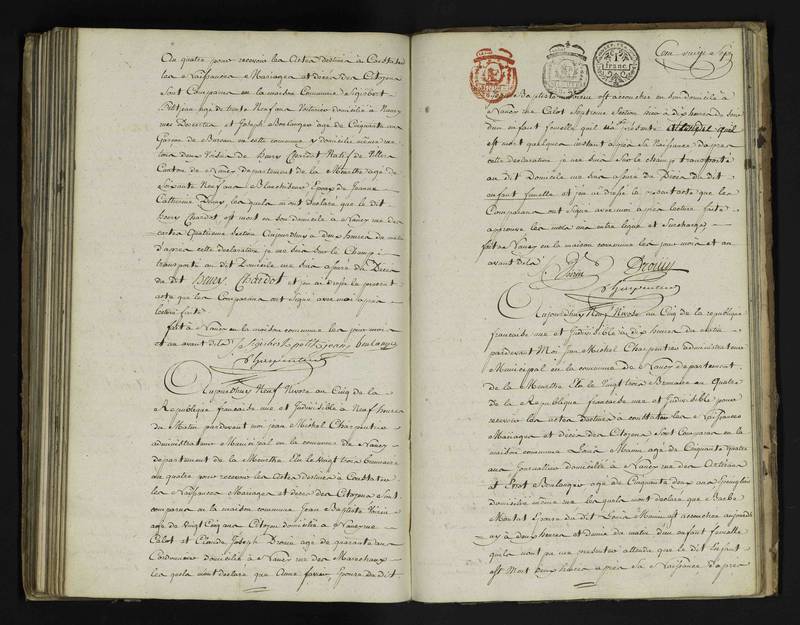 An quatre pour recevoir les actes destinés à Constater
les Naissances Mariages et décès des Citoyens
Sont Comparus en la maison Commune Sigisbert
Petitjean agé de trente Neuf ans Voiturier domicilié à Nancy
rue et Joseph Boulanger agé de Cinquante ans
Garcon de Bureau en cette commune y domicilié même rue
tous deux Voisins de Henry Chardot Natif de
Canton de Nancy departement de la Meurthe agé de
Soixante Neuf ans Blanchisseur Epoux de Jeanne
Catherine les quels m'ont declaré que le dit
Henry Chardot est mort en son domicile à Nancy rue
quatrieme Section Aujourdhuy à deux heures du matin
d'après cette declaration je me suis sur le Champ
transporté au dit Domicile me suis assuré du Décès
du dit Henry Chardot et j'en ai dressé le present
acte que les Comparans ont Signé avec moi après
lecture faite
fait à Nancy en la maison commune les jour mois
et an avant dits Sigisbert petitjean boulanger
Charpentier
Aujourdhuy Neuf Nivose an Cinq de la
Republique francaise une et Indivisible à Neuf heures
du Matin pardevant moi jean Michel Charpentier
administrateur Municipal en la commune de Nancy
departement de la Meurthe Elu le vingt trois brumaire
an quatre pour recevoir les Actes destinés à Constater
les Naissances Mariages et décès des Citoyens Sont
comparus en la maison commune Jean Baptiste
age de Vingt Cinq ans Citoyen domicilié à Nancy rue
Calot et Claude Joseph Drouin age de quarante ans
Cordonnier domicilié à Nancy rue des Marechaux
les quels m'ont declaré que Anne Epouse du dit
1 franc
Cent vingt Sept
Jean Baptiste est accouchée en son domicile à
Nancy rue Calot Septieme Section hier à dix heures du Soir
d'un enfant femelle qu'il m'a presenté attendu qu'il
est mort quelques instants après Sa Naissance d'après
cette declaration je me suis sur le champ transporté
au dit Domicile me suis assuré du Décès du dit
enfant femelle et j'en ai dressé le present acte que les
Comparans ont Signé avec moi après lecture faite
approuvé les mots une autre ligne et Surcharge
fait à Nancy en la maison commune les jour mois et an
avant dits Drouin
Charpentier
Aujourdhuy Neuf Nivose an Cinq de la republique
francaise une et Indivisible à dix heures du matin
pardevant Moi jean Michel Charpentier administrateur
Municipal en la commune de Nancy departement
de la Meurthe Elu le Vingt trois Brumaire an Quatre
de la Republique francaise une et Indivisible pour
recevoir les actes destinés à constater les Naissances
Mariages et décès des Citoyens Sont Comparus en la
maison commune Louis Mamin age de Cinquante quatre
ans journalier domicilié à Nancy rue des Orleans
et Boulanger agé de Cinquante deux ans
domicilié même rue les quels m'ont declaré que Barbe
Epouse du dit Louis Mamin est accouchée aujourdhuy
à deux heures et demie du matin d'un enfant femelle
quils n'ont pu me presenter attendu que le dit Enfant
est Mort deux heures après Sa Naissance d'après